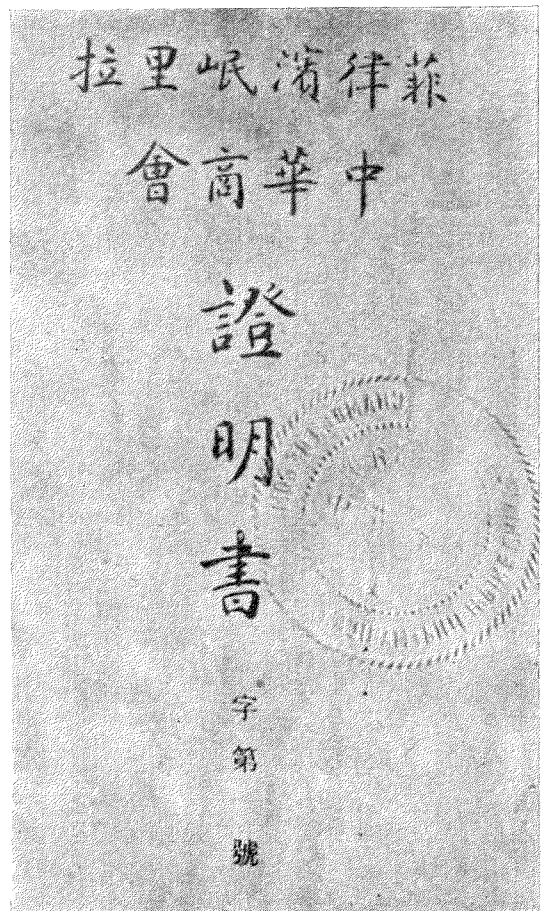 菲律濱岷里拉
中華商會
證明書
字第 號